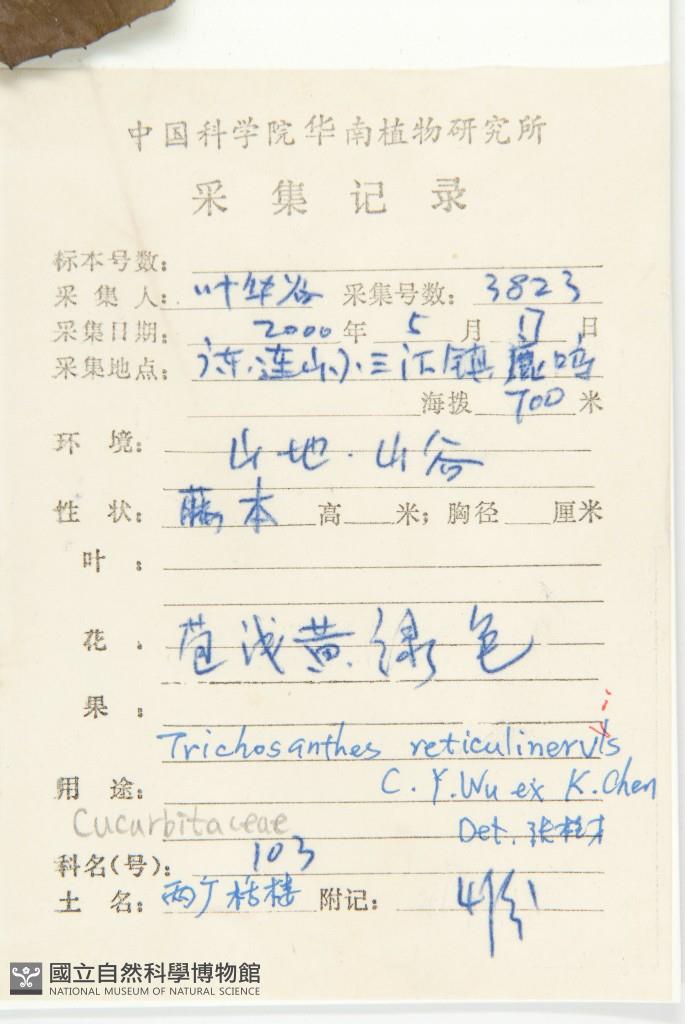 中国科学院华南植物研究所
采集记录
标本号数:
采集人: 叶华谷 采集号数: 3823
采集日期: 2000 年 5 月 17 日
采集地点: 连山 三江镇 鹿鸣
海拨 700 米
环境: 山地·山谷
性状: 藤本 高 米; 胸径 厘米
叶:
花: 苞浅黄绿色
果:
Trichosanthes reticulinervis
用途: C. Y. Wu ex K. Chen
Cucurbitaceae Det. 张
科名(号): 103
土名: 两广栝楼 附记: 4份
國立自然科學博物館
NATIONAL MUSEUM OF NATURAL SCIENCE